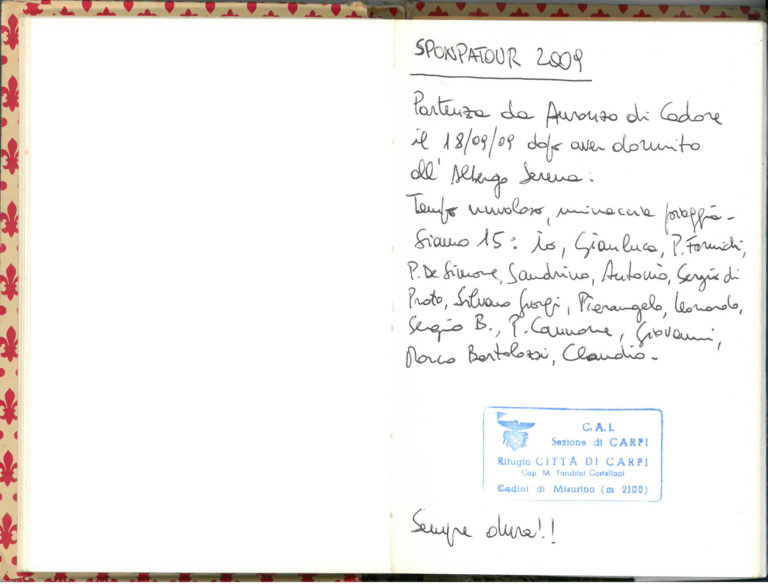 SPONPATOUR 2009
Partenza da Auronzo di Cadore
il 18/09/09 dopo aver dormito
all' Albergo Serena:
Tempo nuvoloso, minaccia pioggia-
Siamo 15: io, Gianluca, P. Formichi,
P. De Simone, Sandrino, Antonio, Sergio di
Prato, Silvano Giorgi, Pierangelo, Leonardo,
Sergio B., P. Cannone, Giovanni,
Marco Bartolozzi, Claudio-
C.A.I.
Sezione di CARPI
Rifugio CITTÀ DI CARPI
Cap. M. Tarabini Castellani
Cadini di Misurina (m 2100)
Sempre dura!!